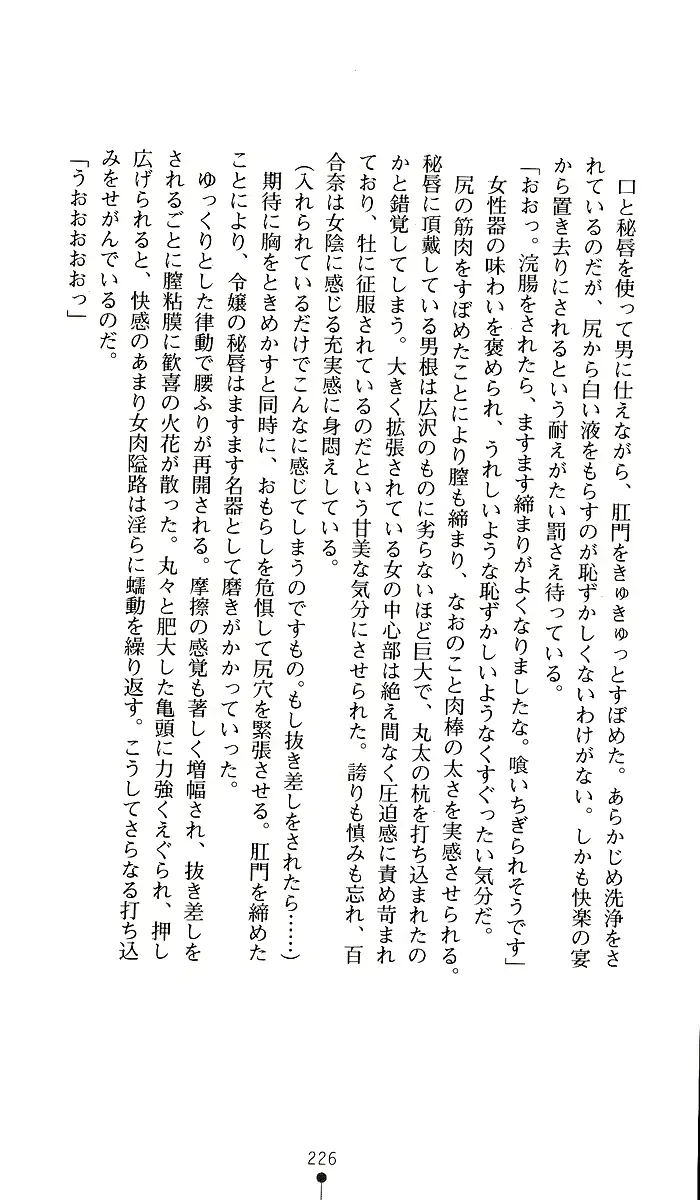 口と秘唇を使って男に仕えながら、肛門をきゅきゅっとすぼめた。あらかじめ洗浄をさ
れているのだが、尻から白い液をもらすのが恥ずかしくないわけがない。しかも快楽の宴
から置き去りにされるという耐えがたい罰さえ待っている。
「おおっ。浣腸をされたら、ますます締まりがよくなりましたな。喰いちぎられそうです」
女性器の味わいを褒められ、うれしいような恥ずかしいようなくすぐったい気分だ。
尻の筋肉をすぼめたことにより膣も締まり、なおのこと肉棒の太さを実感させられる。
秘唇に頂戴している男根は広沢のものに劣らないほど巨大で、丸太の杭を打ち込まれたの
かと錯覚してしまう。大きく拡張されている女の中心部は絶え間なく圧迫感に責め苛まれ
ており、牡に征服されているのだという甘美な気分にさせられた。誇りも慎みも忘れ、百
合奈は女陰に感じる充実感に身悶えしている。
(入れられているだけでこんなに感じてしまうのですもの。もし抜き差しをされたら……)
期待に胸をときめかすと同時に、おもらしを危惧して尻穴を緊張させる。肛門を締めた
ことにより、令嬢の秘唇はますます名器として磨きがかかっていった。
ゆっくりとした律動で腰ふりが再開される。摩擦の感覚も著しく増幅され、抜き差しを
されるごとに膣粘膜に歓喜の火花が散った。丸々と肥大した亀頭に力強くえぐられ、押し
広げられると、快感のあまり女肉隘路は淫らに蠕動を繰り返す。こうしてさらなる打ち込
みをせがんでいるのだ。
「うおおおおおっ」
226